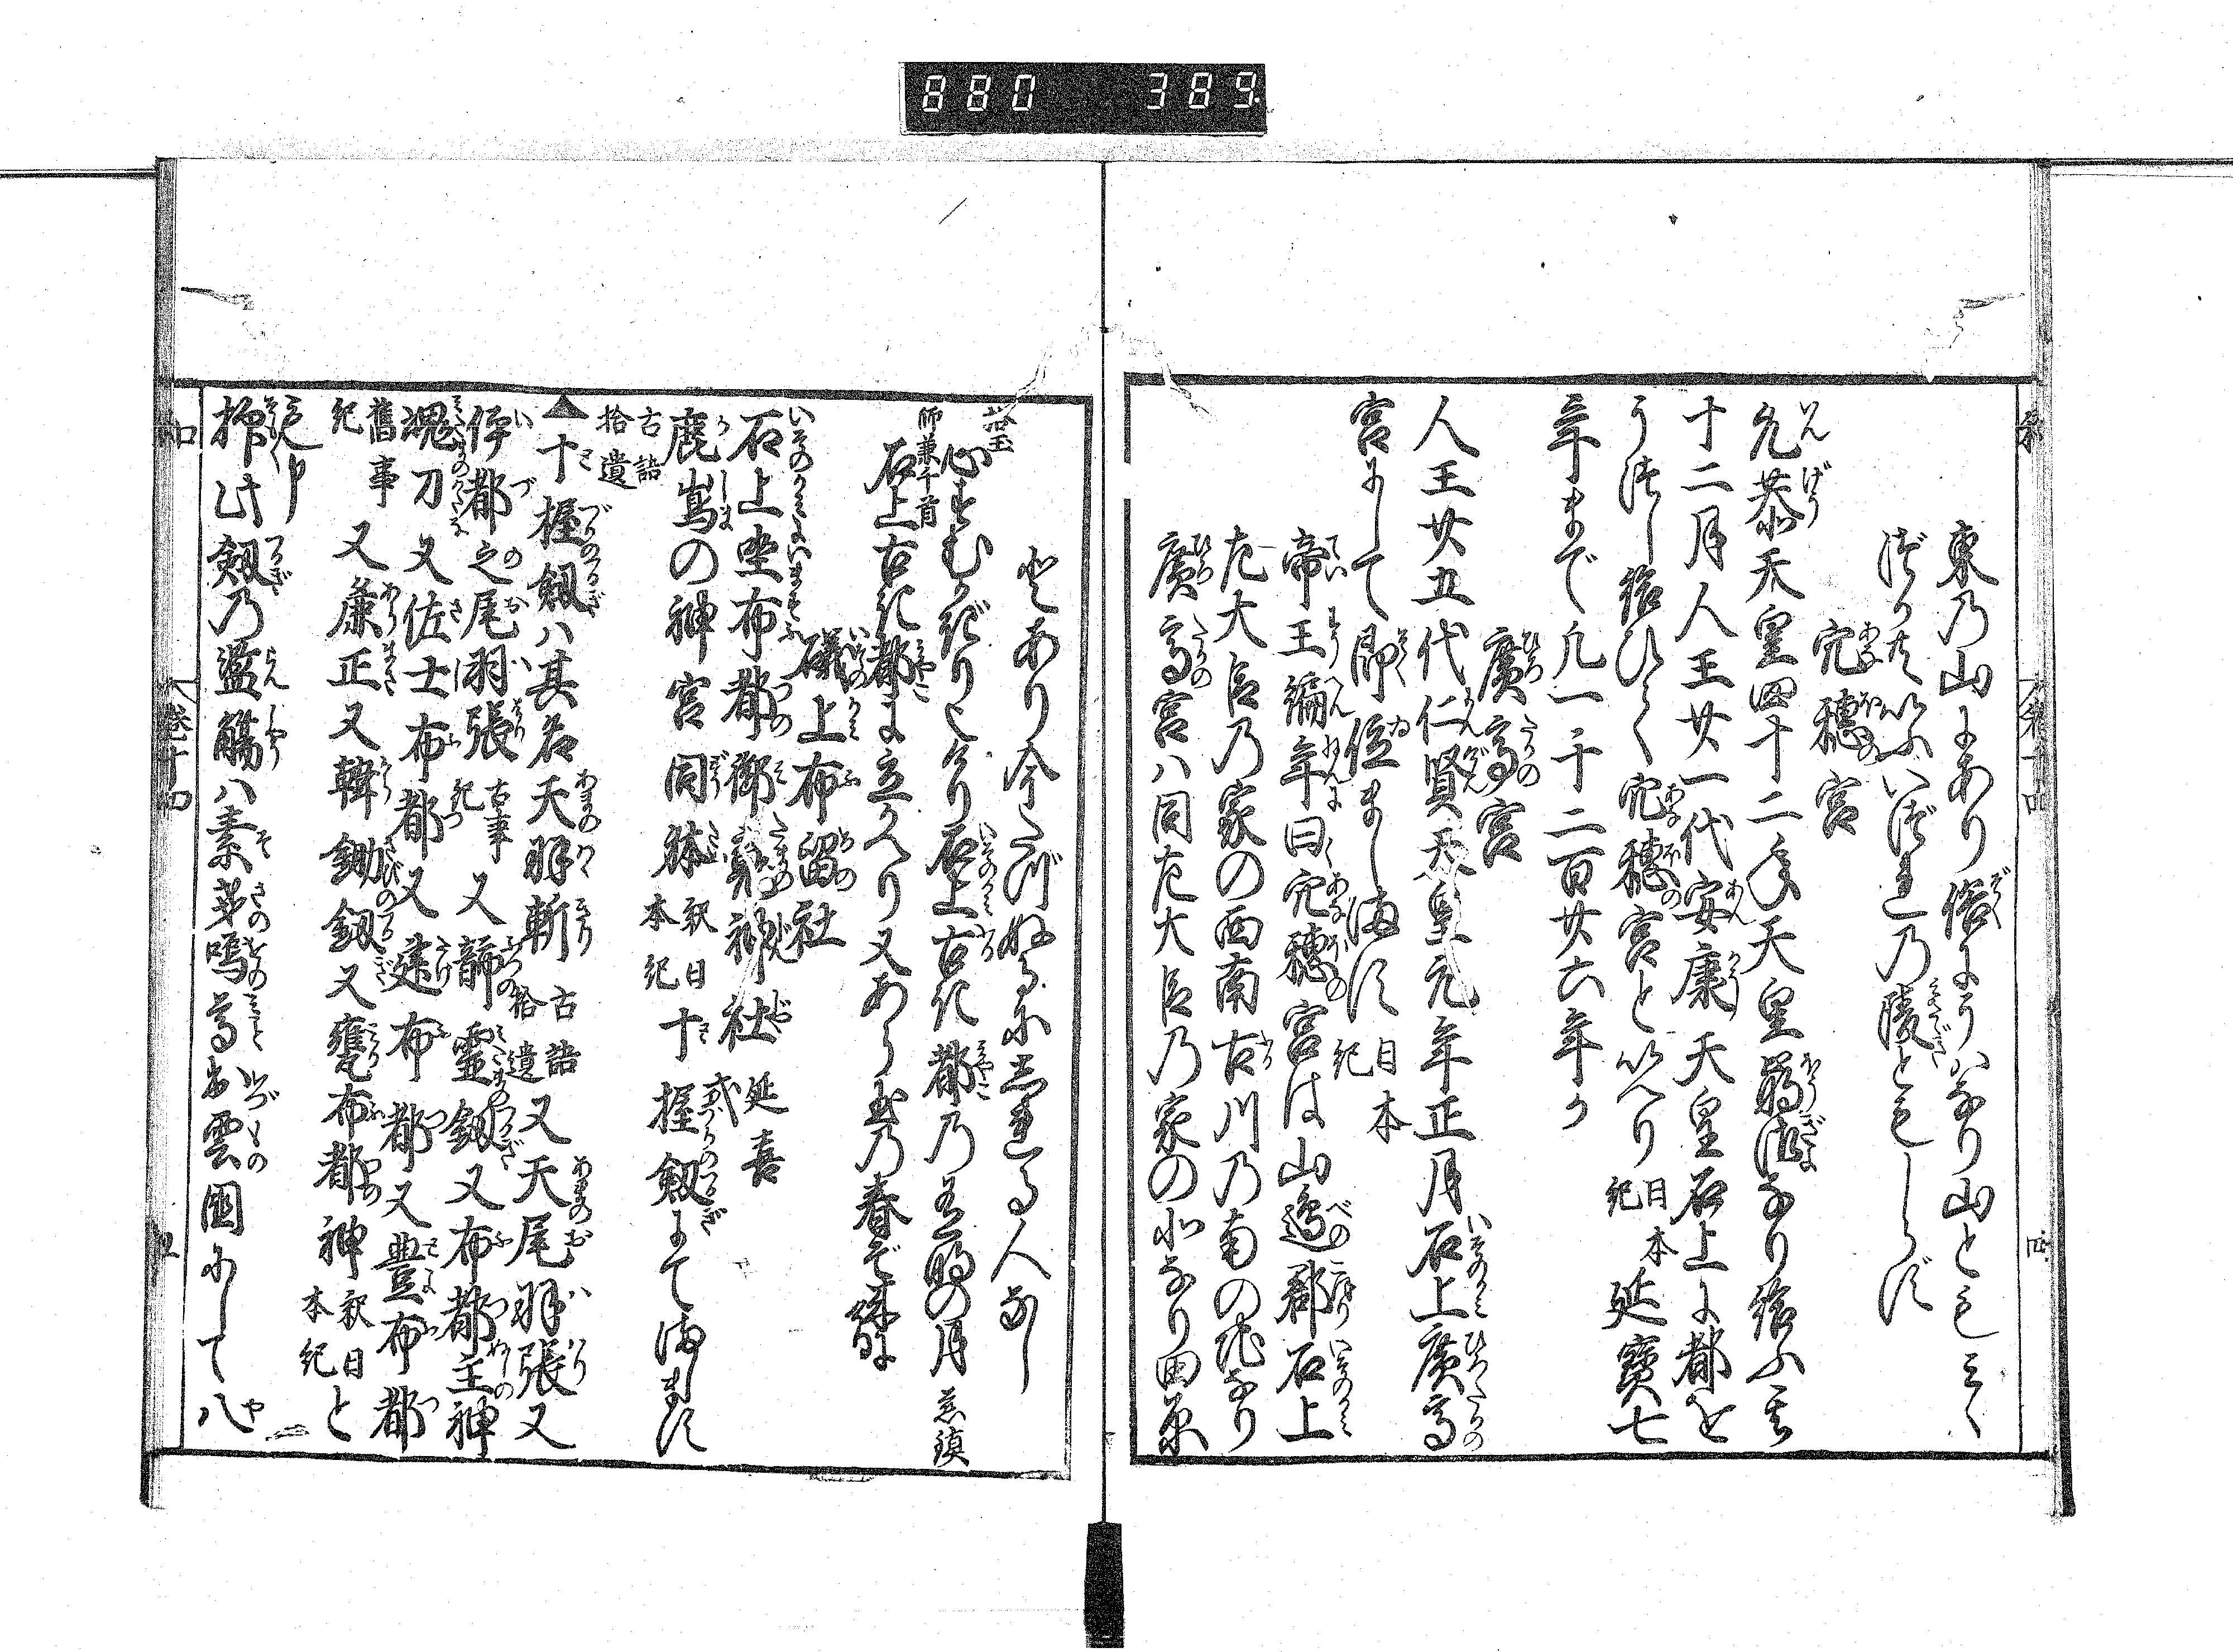 880 389
東乃山にあり俗にうはなり山ともミく
づか共いふいづれ乃陵ともしらず
穴穂宮
允恭天皇四十二年天皇崩御なり給ふ其
十二月人王廿一代安康天皇石上に都を
うつし給ひて穴穂宮といへり日本紀延寶七
年まで凡一千二百廿六年か
廣高宮
人王廿五代仁賢天皇元年正月石上廣高
宮にして即位まします日本紀
帝王編年曰穴穂宮は山邊郡石上
左大臣乃家の西南古川乃南の地なり
廣高宮ハ同左大臣乃家の北なり田原
とあり今たづぬるにしれる人なし
拾玉
心すむかぎりなりけり石上古き都乃有明の月 慈鎮
師兼千首
石上古き都に立かへり又あらたまの春ぞ
礒上布留社
石上坐布都御魂神社 延喜式
鹿嶌の神宮同躰釈日本紀十握劔にてまします
古語拾遺
▲十握劔ハ其名天羽斬古語拾遺又天尾羽張又
伊都之尾羽張古事紀又韴霊劔又布都主神
魂刀又佐士布都又建布都又豊布都
舊事紀又麁正又韓鋤劔又甕布都神釈日本紀と
此劔乃濫觴ハ素戔嗚尊出雲國にして八
卷十四
五